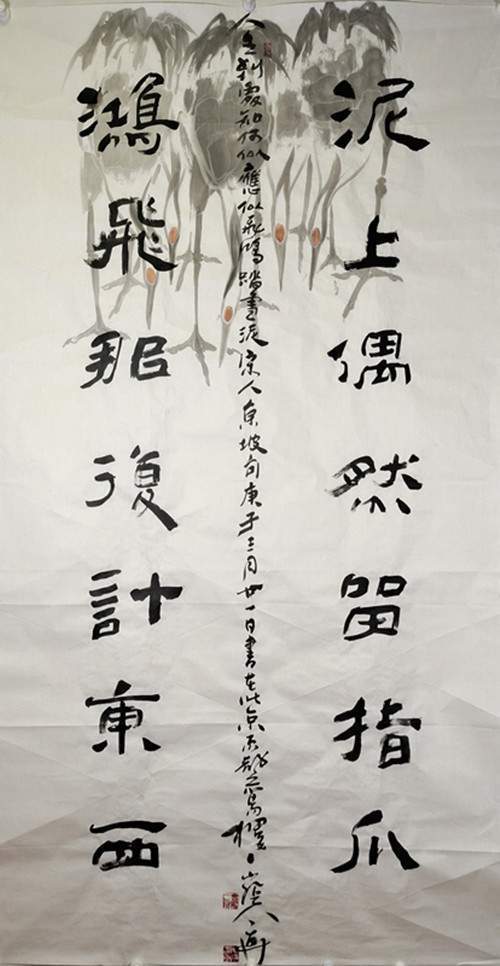 泥上偶然留指爪
人生到處知何似應似飛鴻踏雪泥宋人東坡句庚子三月廿一日書在北京
鴻飛那復計東西